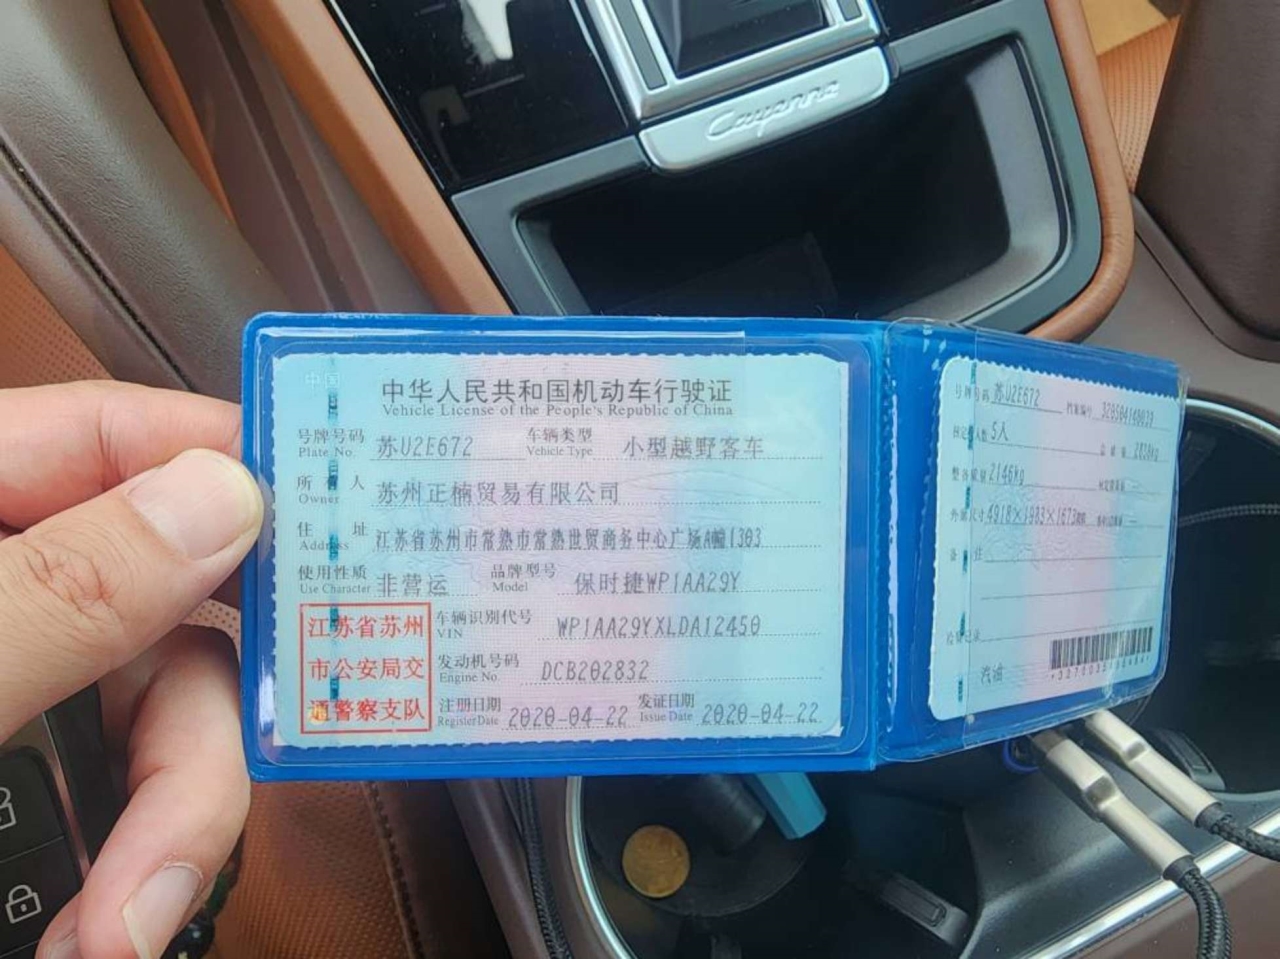 Cayenne
中国
中华人民共和国机动车行驶证
Vehicle License of the People's Republic of China
号牌号码 苏U2E672 车辆类型 小型越野客车
Plate No. Vehicle Type
所有人 苏州正楠贸易有限公司
Owner
住址 江苏省苏州市常熟市常熟世贸商务中心广场A幢1303
Address
使用性质 非营运 品牌型号 保时捷WP1AA29Y
Use Character Model
江苏省苏州
市公安局交
通警察支队
车辆识别代号 WP1AA29YXLDA12450
VIN
发动机号码 DCB202832
Engine No.
注册日期 2020-04-22 发证日期 2020-04-22
Register Date Issue Date
号牌号码 苏U2E672 档案编号
核定人数 5人 总质量 2830kg
整备质量 2146kg
外廓尺寸 4918×1983×1673mm
备注
检验记录
汽油